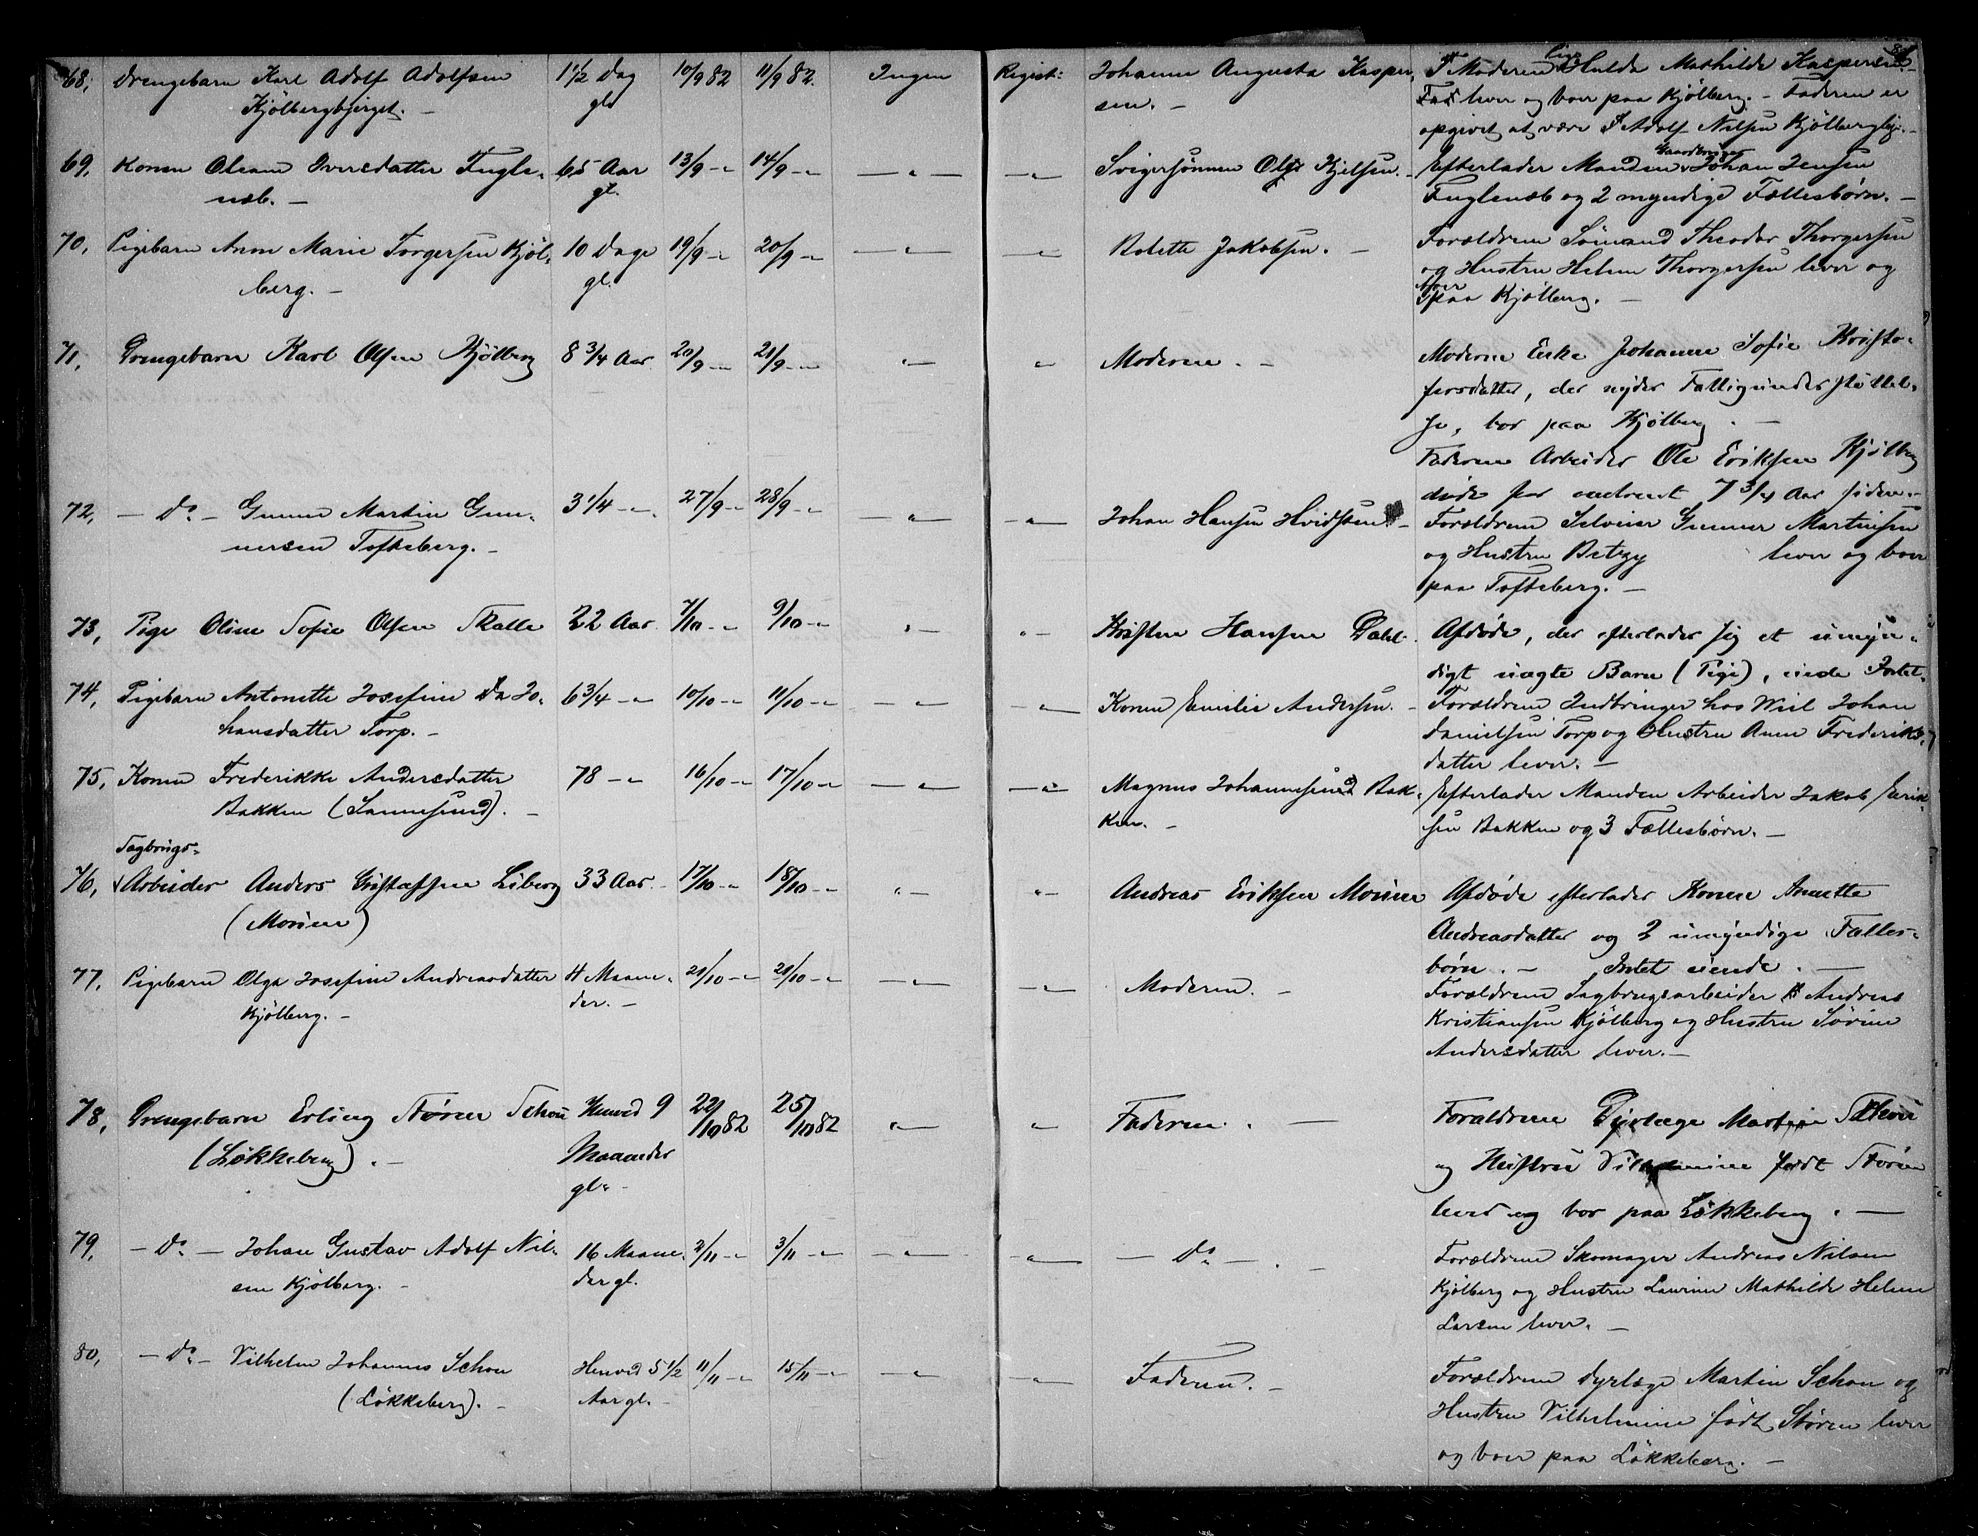 68, Drengebarn Karl Adolf Adolfsen 1 1/2 Dag 10/9 82 11/9 82. Ingen Regist: Johanne Augusta Kasper, Moderen Pige Hulda Mathilde Kaspersen
Kjølbergbjerget. – gl sen. – lever og bor paa Kjølberg. – Faderen er
opgivet at være Adolf Nilsen Kjølbergbj. –
69, Konen Oleana Iversdatter Fugle- 65 Aar 13/9 -"- 14/9 -"- — " — — " — Svigersønnen Ole Kjelsen. – Efterlader Manden Gaardbruger Johan Jensen
næb. – gl. Fuglenæb og 2 myndige Fællesbørn. –
70, Pigebarn Anne Marie Torgersen Kjøl- 10 Dage 19/9 -"- 20/9 -"- — " — — " — Bolette Jakobsen. – Forældrene Sømand Theodor Thorgersen
berg. – gl. og Hustru Helene Thorgersen lever og
bor paa Kjølberg. –
71, Drengebarn Karl Olsen Kjølberg 8 3/4 Aar 20/9 -"- 21/9 -"- " " Moderen. – Moderen Enke Johanne Sofie Kristo-
fersdatter, der nyder Fattigunderstøttel-
se, bor paa Kjølberg. –
Faderen Arbeider Ole Eriksen Kjølberg
døde for omtrent 7 3/4 Aar siden. –
72, — Do — Gunner Martin Gun- 3 1/4 -"- 27/9 -"- 28/9 -"- — " — — " — Johan Hansen Hvidsten – Forældrene Selveier Gunner Martinsen
nersen Tofteberg. – og Hustru Betzy lever og boer
paa Tofteberg. –
73, Pige Oline Sofie Olsen Skalle 22 Aar 7/10 -"- 9/10 -"- " – " – Kristen Hansen Dahl. Afdøde, der efterlader sig et umyn-
digt uægte Barn (Pige), eiede Intet.
74, Pigebarn Antonette Josefine Jo- 6 3/4 -"- 10/10 -"- 11/10 -"- — " — — " — Konen Emilie Andersen. – Forældrene Indbringer hos Wiel Johan
hansdatter Torp. – Danielsen Torp og Hustru Anne Frederiks-
datter lever. –
75, Konen Frederikke Andersdatter 78 -"- 16/10 -"- 17/10 -"- — " — — " — Magnus Johannesen Bak- Efterlader Manden Arbeider Jakob Erik-
Bakken (Sannesund). – ken. – sen Bakken og 3 Fællesbørn. –
Sagbrugs-
76, Arbeider Anders Gustafsen Liberg 33 Aar. 17/10 -"- 18/10 -"- " – " – Andreas Eriksen Moum Afdøde efterlader Konen Annette
(Moum) Andreasdatter og 2 umyndige Fælles-
børn. – Intet eiende. –
77, Pigebarn Olga Josefine Andreasdatter 4 Maane- 21/10 -"- 21/10 -"- — " — — " — Moderen. – Forældrene Sagbrugsarbeider Andreas
Kjølberg. – der. – Kristiansen Kjølberg og Hustru Sørine
Andersdatter lever. –
78, Drengebarn Erling Støren Schou Henved 9 22/10 82 25/10 82 " " Faderen. – Forældrene Dyrlæge Martin Schou
(Løkkeberg). – Maaneder og Hustru Vilhelmine født Støren
gl. – lever og bor paa Løkkeberg. –
79, — Do — Johan Gustav Adolf Nil- 16 Maane- 2/11 -"- 3/11 -"- — " — — " — — Do — Forældrene Skomager Andreas Nilsen
sen Kjølberg. – der gl. Kjølberg og Hustru Laurine Mathilde Helene
Larsen lever. –
80, — Do — Vilhelm Johannes Schou Henved 5 1/2 11/11 -"- 15/11 -"- — " — — " — Faderen. – Forældrene Dyrlæge Martin Schou og
(Løkkeberg). – Aar gl. – Hustru Vilhelmine født Støren lever
og boer paa Løkkeberg. –